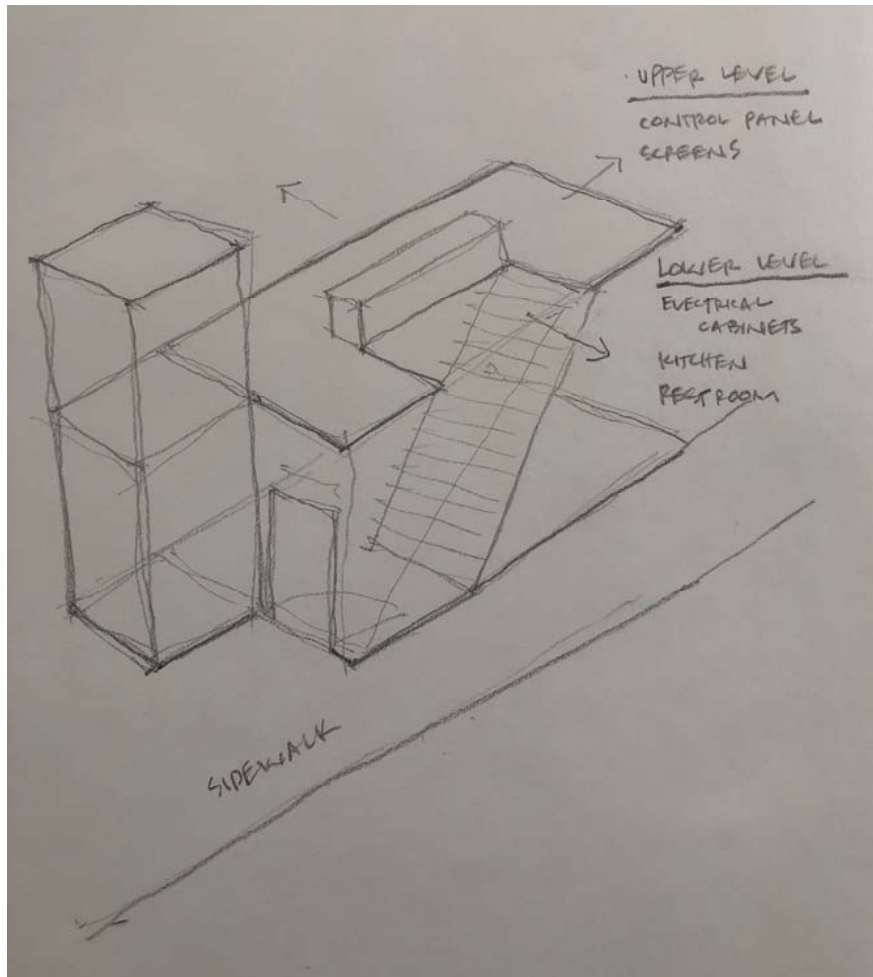 UPPER LEVEL
CONTROL PANEL
SCREENS
LOWER LEVEL
ELECTRICAL
CABINETS
KITCHEN
RESTROOM
SIDEWALK